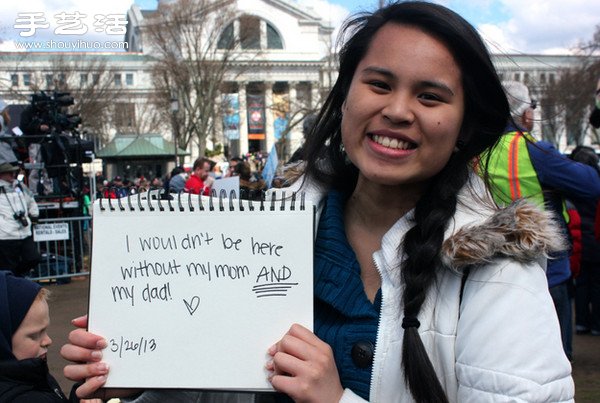 手艺活
www.shouyihuo.com
I wouldn't be here
without my mom AND
my dad! ♡
3/26/13